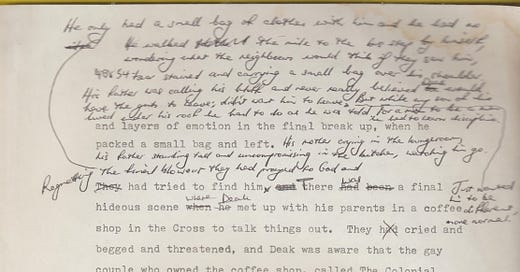 He only had a small bag of clothes with him and he had no
He walked the mile to the bus stop by himself,
wondering what the neighbours would think if they saw him,
tear stained and carrying a small bag over his shoulder.
His father was calling his bluff and never really believed he would
have the guts to leave; didn't want him to leave. But while any son of his
lived under his roof he had to do as he was told for a man to be a man
he had to learn discipline
and layers of emotion in the final break up, when he
packed a small bag and left. His mother crying in the loungeroom,
his father standing tall and uncompromising in the kitchen, watching him go.
Regretting the they had prayed to God and
They had tried to find him, and There had been was a final
Just wanted
him to be
different
more normal.
hideous scene when he were Deak met up with his parents in a coffee
shop in the Cross to talk things out. They had cried and
begged and threatened, and Deak was aware that the gay
couple who owned the coffee shop, called The Colonial